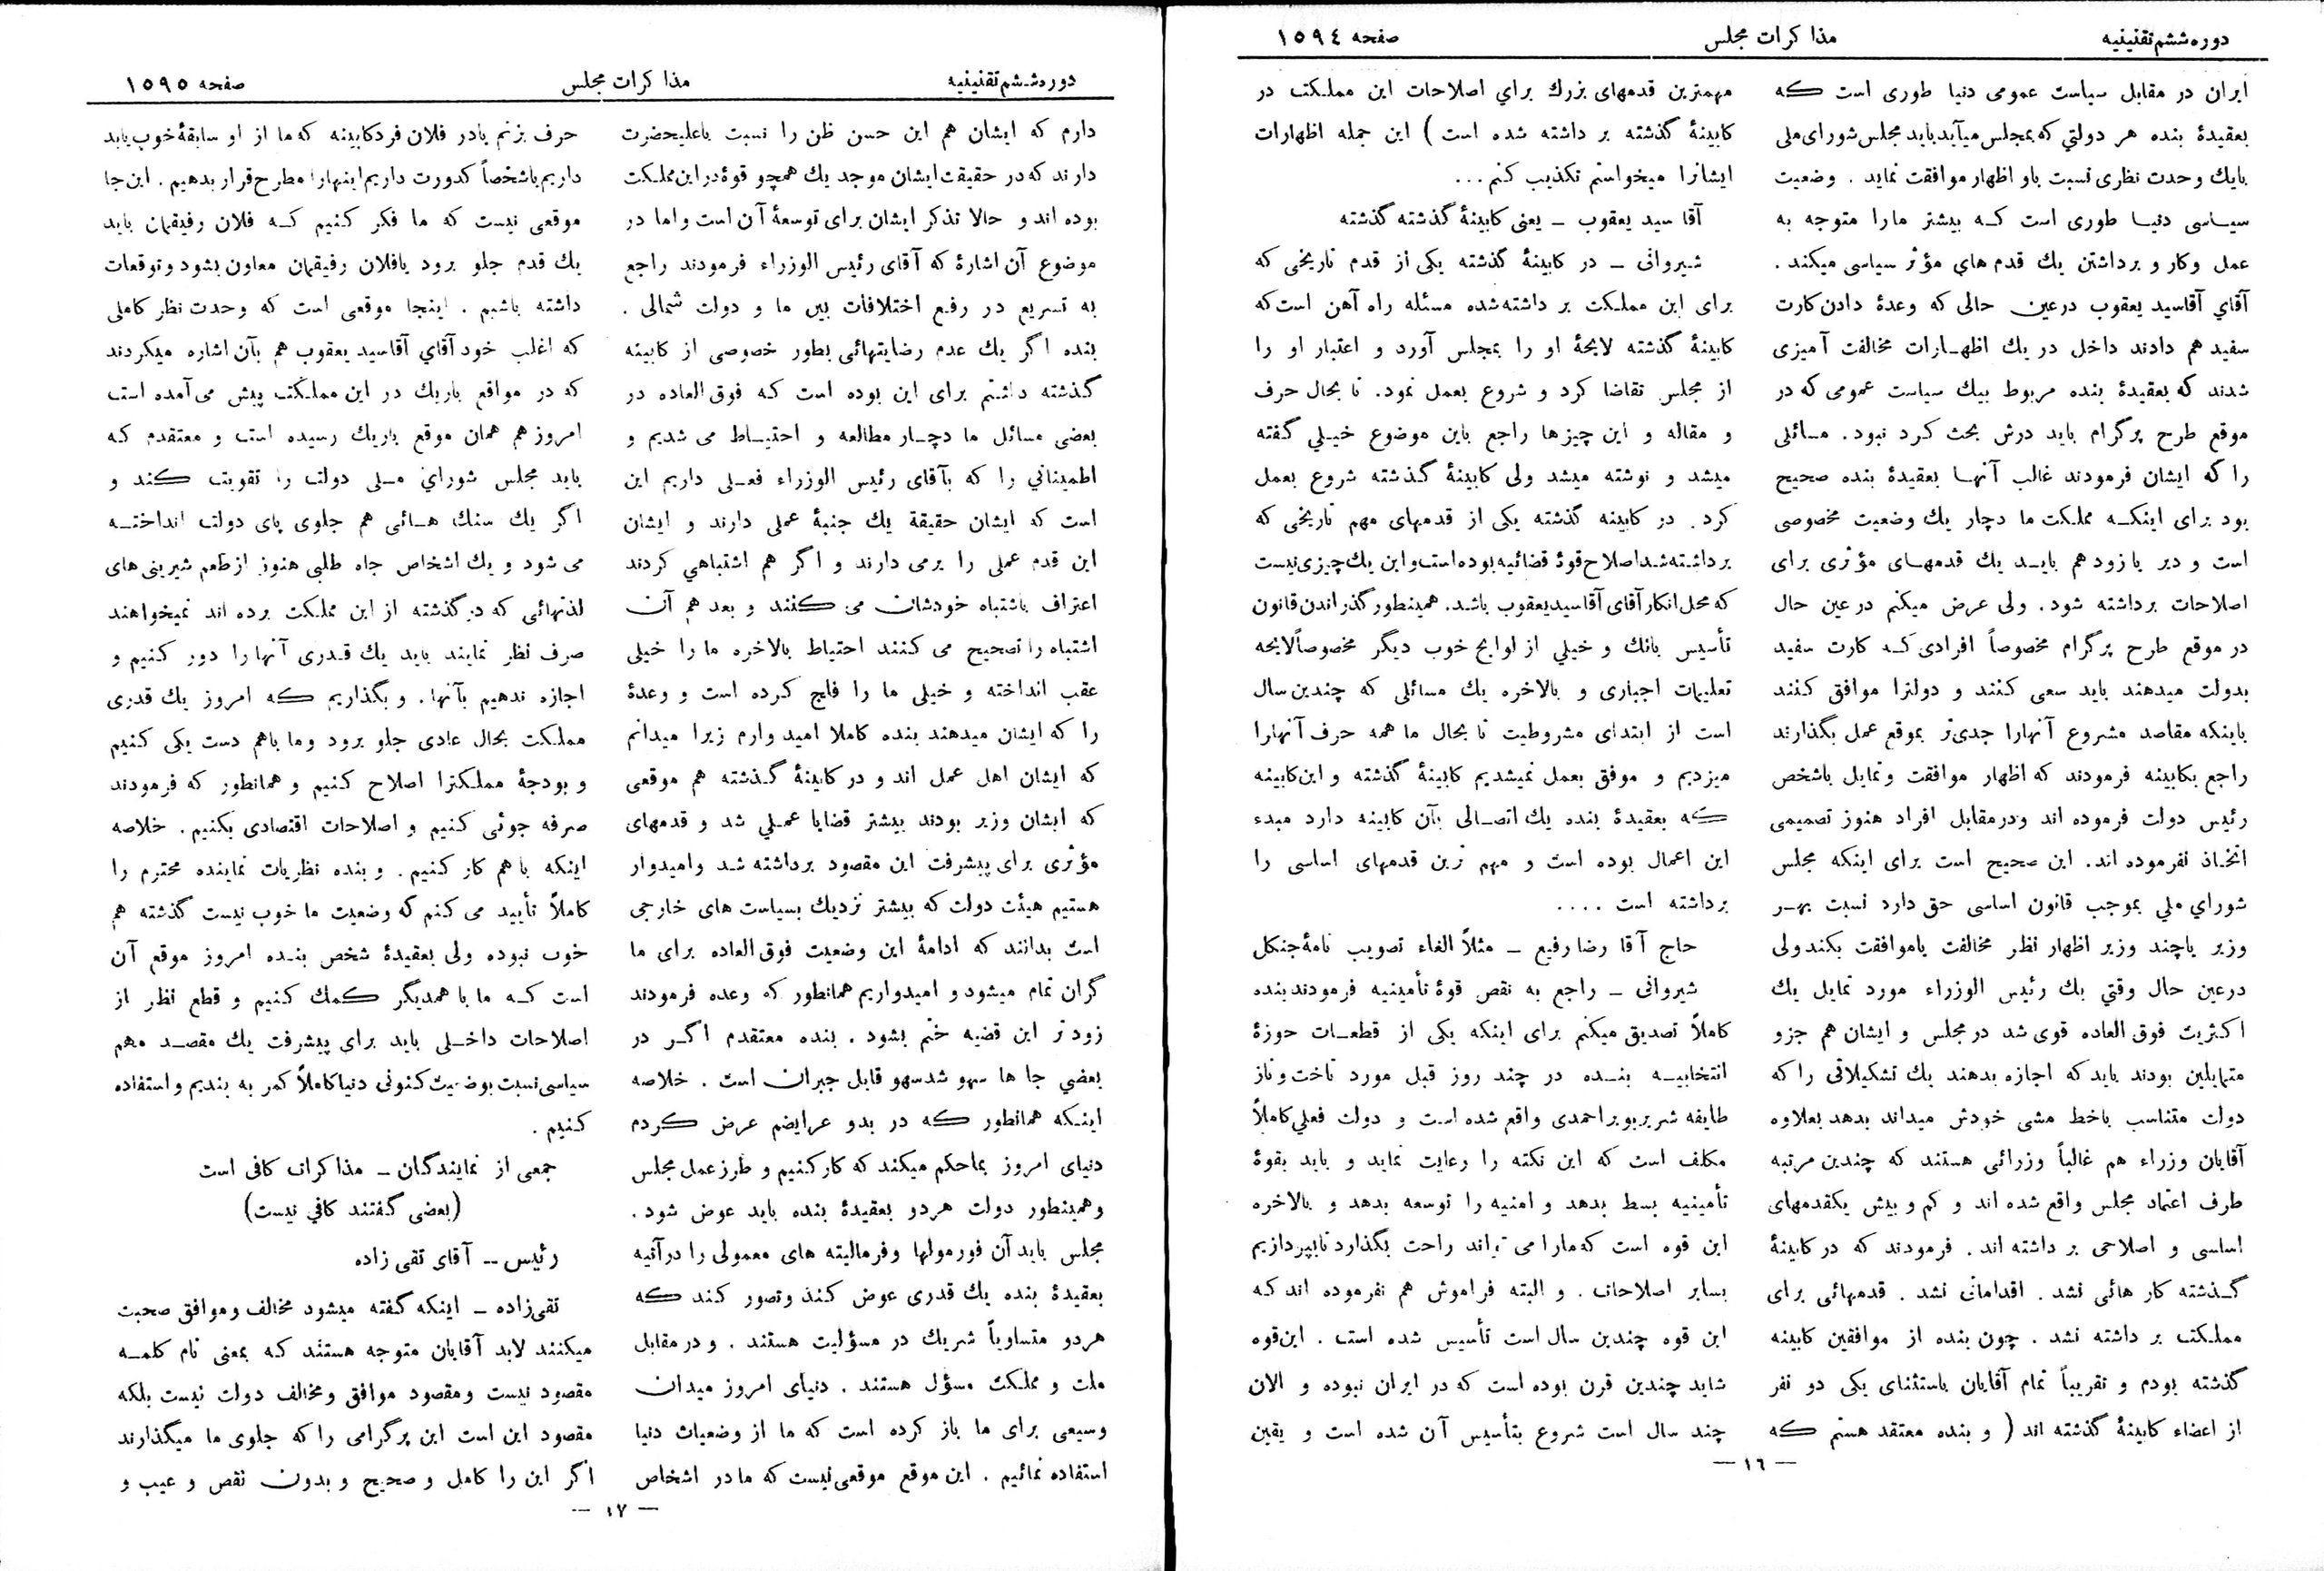 دوره ششم تقنینیه
مذاکرات مجلس
صفحه ١٥٩٤
ایران در مقابل سیاست عمومی دنیا طوری است که
بعقیدهٔ بنده هر دولتي که بمجلس میآید باید مجلس شورای ملی
بایك وحدت نظری نسبت باو اظهار موافقت نماید . وضعیت
سیاسی دنیا طوری است که بیشتر مارا متوجه به
عمل وکار و برداشتن یك قدم هاي مؤثر سیاسی میکند .
آقاي آقاسید یعقوب درعین حالی که وعدهٔ دادن کارت
سفید هم دادند داخل در یك اظهارات مخالفت آمیزی
شدند که بعقیدهٔ بنده مربوط بیك سیاست عمومی که در
موقع طرح پرگرام باید درش بحث کرد نبود . مسائلی
را که ایشان فرمودند غالب آنها بعقیدهٔ بنده صحیح
بود برای اینکه مملکت ما دچار یك وضعیت مخصوصی
است و دیر یا زود هم باید یك قدمهای مؤثری برای
اصلاحات برداشته شود . ولی عرض میکنم درعین حال
در موقع طرح پرگرام مخصوصاً افرادی که کارت سفید
بدولت میدهند باید سعی کنند و دولترا موافق کنند
باینکه مقاصد مشروع آنهارا جدی‌تر بموقع عمل بگذارند
راجع بکابینه فرمودند که اظهار موافقت وتمایل باشخص
رئیس دولت فرموده اند ودرمقابل افراد هنوز تصمیمی
اتخاذ نفرموده اند. این صحیح است برای اینکه مجلس
شورای ملي بموجب قانون اساسی حق دارد نسبت بهر
وزیر یاچند وزیر اظهار نظر مخالفت یاموافقت بکندولی
درعین حال وقتي یك رئیس الوزراء مورد تمایل یك
اکثریت فوق العاده قوی شد در مجلس و ایشان هم جزو
متمایلین بودند باید که اجازه بدهند یك تشکیلاتی را که
دولت متناسب باخط مشی خودش میداند بدهد بعلاوه
آقایان وزراء هم غالباً وزرائی هستند که چندین مرتبه
طرف اعتماد مجلس واقع شده اند و کم و بیش یکقدمهای
اساسی و اصلاحی بر داشته اند . فرمودند که در کابینهٔ
گذشته کار هائی نشد . اقداماتی نشد . قدمهائی برای
مملکت بر داشته نشد . چون بنده از موافقین کابینه
گذشته بودم و تقریباً تمام آقایان باستثنای یکی دو نفر
از اعضاء کابینهٔ گذشته اند ( و بنده معتقد هستم که
مهمترین قدمهای بزرك براي اصلاحات این مملکت در
کابینهٔ گذشته بر داشته شده است ) این جمله اظهارات
ایشانرا میخواستم تکذیب کنم ...
آقا سید یعقوب ـ یعنی کابینهٔ گذشته گذشته
شیروانی ـ در کابینهٔ گذشته یکی از قدم تاریخی که
برای این مملکت بر داشته شده مسئله راه آهن است که
کابینهٔ گذشته لایحهٔ او را بمجلس آورد و اعتبار او را
از مجلس تقاضا کرد و شروع بعمل نمود. تا بحال حرف
و مقاله و این چیزها راجع باین موضوع خیلي گفته
میشد و نوشته میشد ولی کابینهٔ گذشته شروع بعمل
کرد . در کابینه گذشته یکی از قدمهای مهم تاریخی که
برداشته شد اصلاح قوهٔ قضائیه بوده است واین یك چیزی نیست
که محل انکار آقای آقاسید یعقوب باشد. همینطور گذراندن قانون
تأسیس بانك و خیلي از لوایح خوب دیگر مخصوصاً لایحه
تعلیمات اجباری و بالاخره یك مسائلی که چندین سال
است از ابتدای مشروطیت تا بحال ما همه حرف آنهارا
میزدیم و موفق بعمل نمیشدیم کابینهٔ گذشته و این کابینه
که بعقیدهٔ بنده یك اتصالی بآن کابینه دارد مبدء
این اعمال بوده است و مهم ترین قدمهای اساسی را
برداشته است ....
حاج آقا رضا رفیع ـ مثلاً الغاء تصویب نامهٔ جنگل
شیروانی ـ راجع به نقص قوهٔ تأمینیه فرمودند بنده
کاملاً تصدیق میکنم برای اینکه یکی از قطعات حوزهٔ
انتخابیه بنده در چند روز قبل مورد تاخت وتاز
طایفه شریر بویراحمدی واقع شده است و دولت فعلي کاملاً
مکلف است که این نکته را رعایت نماید و باید بقوهٔ
تأمینیه بسط بدهد و امنیه را توسعه بدهد و بالاخره
این قوه است که مارا می تواند راحت بگذارد تابپردازیم
بسایر اصلاحات . و البته فراموش هم نفرموده اند که
این قوه چندین سال است تأسیس شده است . این قوه
شاید چندین قرن بوده است که در ایران نبوده و الان
چند سال است شروع بتأسیس آن شده است و یقین
— ١٦ —
دوره ششم تقنینیه
مذاکرات مجلس
صفحه ١٥٩٥
دارم که ایشان هم این حسن ظن را نسبت باعلیحضرت
دارند که در حقیقت ایشان موجد یك همچو قوهٔ در این مملکت
بوده اند و حالا تذکر ایشان برای توسعهٔ آن است واما در
موضوع آن اشارهٔ که آقای رئیس الوزراء فرمودند راجع
به تسریع در رفع اختلافات بین ما و دولت شمالی .
بنده اگر یك عدم رضایتهائی بطور خصوصی از کابینه
گذشته داشتم برای این بوده است که فوق العاده در
بعضی مسائل ما دچار مطالعه و احتیاط می شدیم و
اطمیناني را که بآقای رئیس الوزراء فعلی داریم این
است که ایشان حقیقة یك جنبهٔ عملی دارند و ایشان
این قدم عملی را برمی دارند و اگر هم اشتباهي کردند
اعتراف باشتباه خودشان می کنند و بعد هم آن
اشتباه را تصحیح می کنند احتیاط بالاخره ما را خیلی
عقب انداخته و خیلی ما را فلج کرده است و وعدهٔ
را که ایشان میدهند بنده کاملا امید وارم زیرا میدانم
که ایشان اهل عمل اند و در کابینهٔ گذشته هم موقعی
که ایشان وزیر بودند بیشتر قضایا عملي شد و قدمهای
مؤثری برای پیشرفت این مقصود برداشته شد وامیدوار
هستیم هیئت دولت که بیشتر نزدیك بسیاست های خارجی
است بدانند که ادامهٔ این وضعیت فوق العاده برای ما
گران تمام میشود و امیدواریم همانطور که وعده فرمودند
زود تر این قضیه ختم بشود . بنده معتقدم اگر در
بعضي جا ها سهو شدسهو قابل جبران است . خلاصه
اینکه همانطور که در بدو عرایضم عرض کردم
دنیای امروز بماحکم میکند که کارکنیم و طرز عمل مجلس
وهمینطور دولت هردو بعقیدهٔ بنده باید عوض شود .
مجلس باید آن فورمولها وفرمالیته های معمولی را در آتیه
بعقیدهٔ بنده یك قدری عوض کند وتصور کند که
هردو متساویاً شریك در مسؤلیت هستند . و در مقابل
ملت و مملکت مسؤل هستند . دنیای امروز میدان
وسیعی برای ما باز کرده است که ما از وضعیات دنیا
استفاده نمائیم . این موقع موقعی نیست که ما در اشخاص
حرف بزنم یادر فلان فردکابینه که ما از او سابقهٔ خوب یابد
داریم یاشخصاً کدورت داریم اینهارا مطرح قرار بدهیم . این جا
موقعی نیست که ما فکر کنیم که فلان رفیقمان باید
یك قدم جلو برود یافلان رفیقمان معاون بشود وتوقعات
داشته باشیم . اینجا موقعی است که وحدت نظر کاملی
که اغلب خود آقاي آقاسید یعقوب هم بآن اشاره میکردند
که در مواقع باریك در این مملکت پیش می آمده است
امروز هم همان موقع باریك رسیده است و معتقدم که
باید مجلس شوراي ملی دولت را تقویت کند و
اگر یك سنك هائی هم جلوی پای دولت انداخته
می شود و یك اشخاص جاه طلبی هنوز از طعم شیرینی های
لذتهائی که در گذشته از این مملکت برده اند نمیخواهند
صرف نظر نمایند باید یك قدری آنها را دور کنیم و
اجازه ندهیم بآنها . و بگذاریم که امروز یك قدری
مملکت بحال عادی جلو برود وما باهم دست یکی کنیم
و بودجهٔ مملکترا اصلاح کنیم و همانطور که فرمودند
صرفه جوئی کنیم و اصلاحات اقتصادی بکنیم . خلاصه
اینکه باهم کار کنیم . و بنده نظریات نماینده محترم را
کاملاً تأیید می کنم که وضعیت ما خوب نیست گذشته هم
خوب نبوده ولی بعقیدهٔ شخص بنده امروز موقع آن
است که ما با همدیگر کمك کنیم و قطع نظر از
اصلاحات داخلی باید برای پیشرفت یك مقصد مهم
سیاسی نسبت بوضعیت کنونی دنیا کاملاً کمر به بندیم و استفاده
کنیم .
جمعی از نمایندگان ـ مذاکرات کافی است
(بعضی گفتند کافي نیست)
رئیس -- آقای تقی زاده
تقی‌زاده ـ اینکه گفته میشود مخالف وموافق صحبت
میکنند لابد آقایان متوجه هستند که بمعنی تام کلمه
مقصود نیست ومقصود موافق ومخالف دولت نیست بلکه
مقصود این است این پرگرامی را که جلوی ما میگذارند
اگر این را کامل و صحیح و بدون نقص و عیب و
— ١٧ —